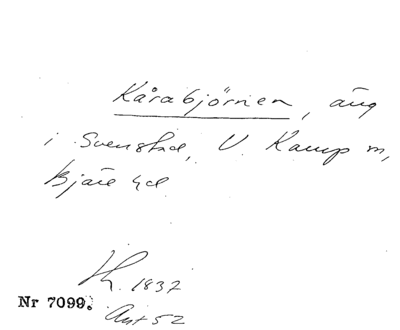 Kårabjörnen, äng
i Svenstad, V. Karup sn,
Bjäre hd
1837
Nr 7099.
Ant 52